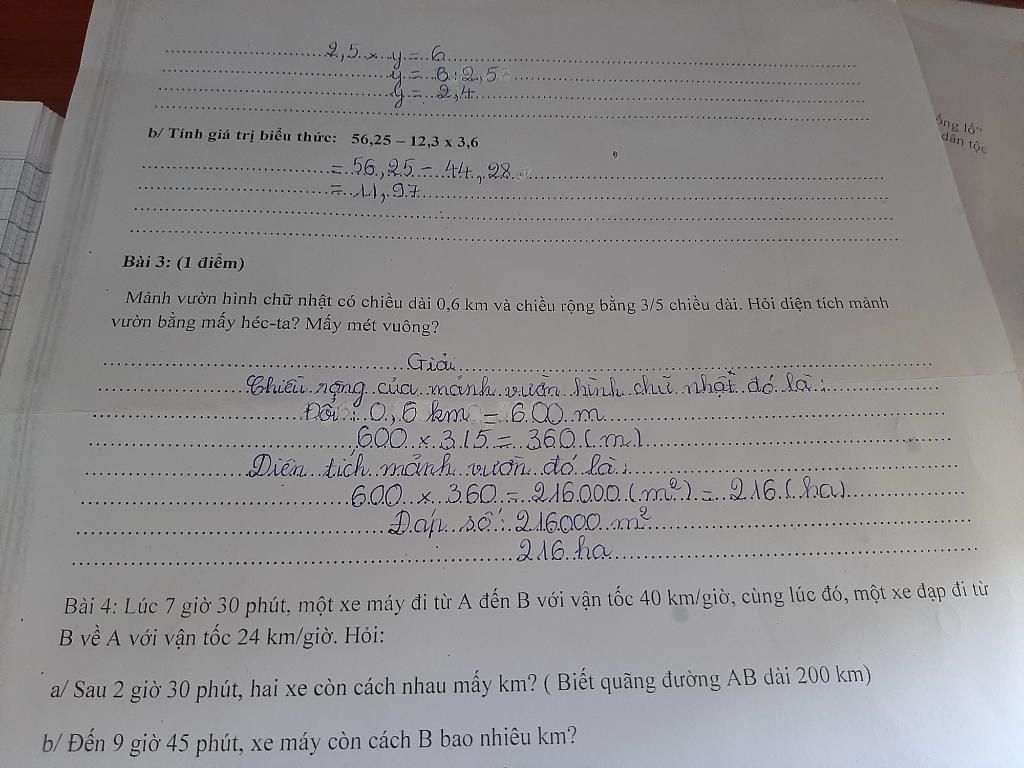 2,5 x y = 6
y = 6 : 2,5
y = 2,4
b/ Tính giá trị biểu thức: 56,25 – 12,3 x 3,6
= 56,25 - 44,28
= 11,97
ồng lồ"
dân tộc
Bài 3: (1 điểm)
Mảnh vườn hình chữ nhật có chiều dài 0,6 km và chiều rộng bằng 3/5 chiều dài. Hỏi diện tích mảnh
vườn bằng mấy héc-ta? Mấy mét vuông?
Giải
Chiều rộng của mảnh vườn hình chữ nhật đó là:
Đổi: 0,6 km = 600 m
600 x 3:5 = 360 (m)
Diện tích mảnh vườn đó là:
600 x 360 = 216000 (m²) = 216 (ha)
Đáp số: 216000 m²
216 ha
Bài 4: Lúc 7 giờ 30 phút, một xe máy đi từ A đến B với vận tốc 40 km/giờ, cùng lúc đó, một xe đạp đi từ
B về A với vận tốc 24 km/giờ. Hỏi:
a/ Sau 2 giờ 30 phút, hai xe còn cách nhau mấy km? ( Biết quãng đường AB dài 200 km)
b/ Đến 9 giờ 45 phút, xe máy còn cách B bao nhiêu km?